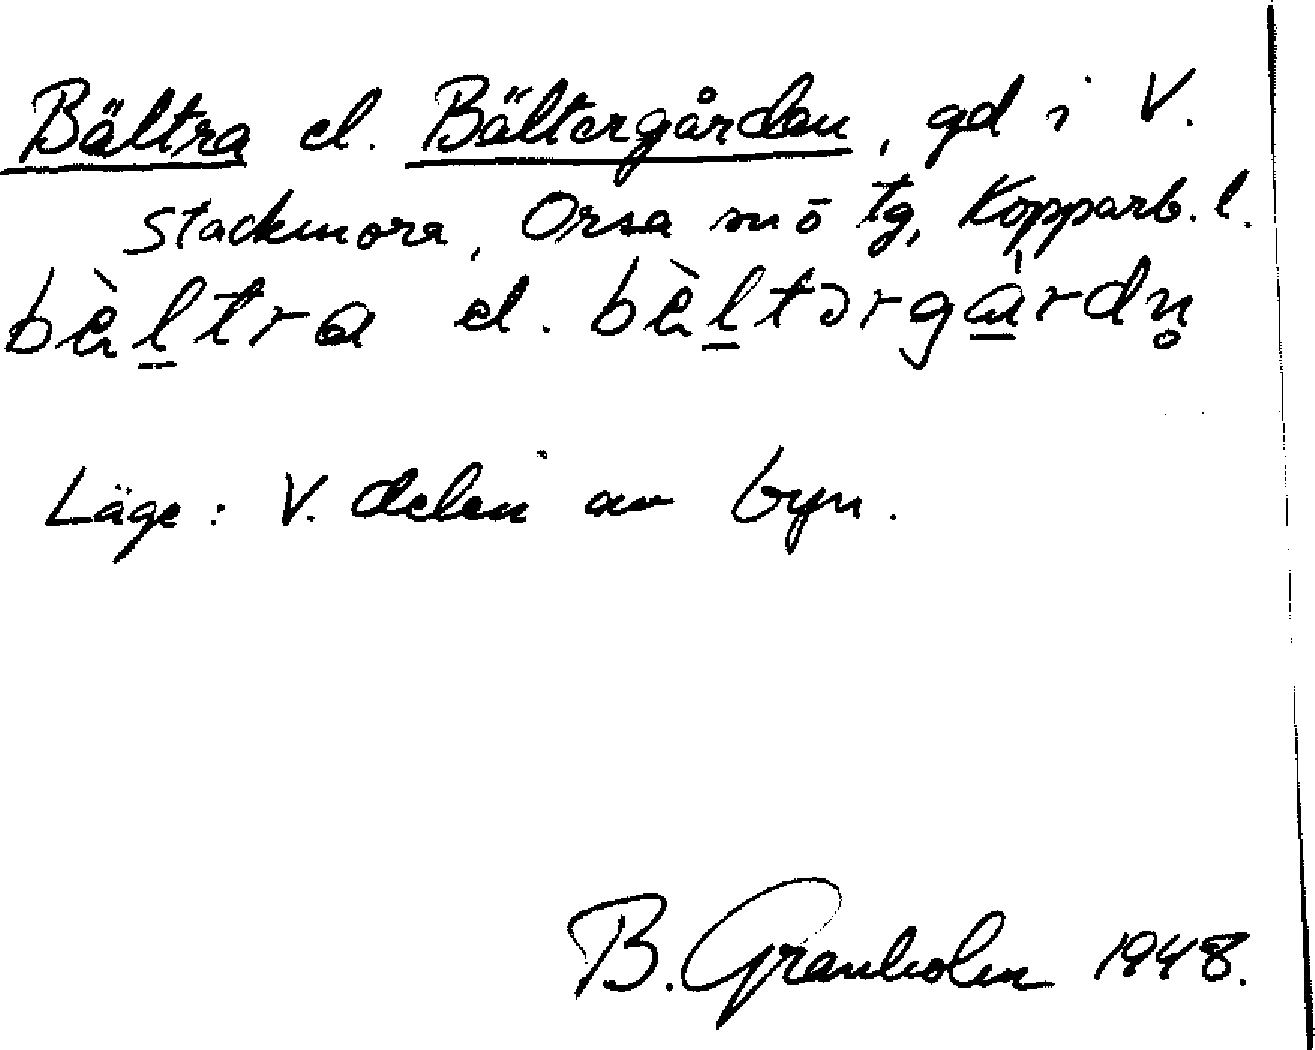 Bältra el. Bältergården, gd i V.
Stackmora, Orsa sn ö tg, Kopparb. l.
bὲl̠tra el. bὲl̠tərga̠̍rdn̥
Läge: V. delen av byn.
B. Granholm 1948.